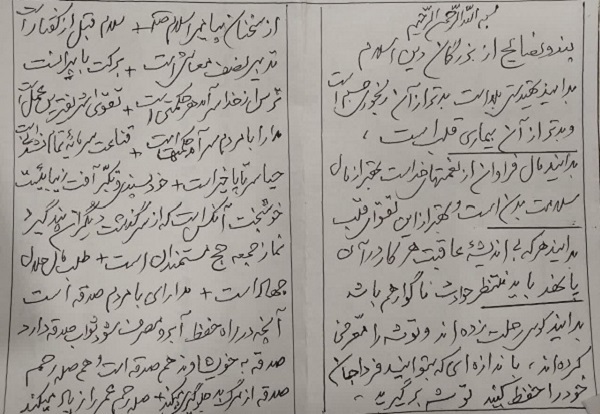 بسم الله الرحمن الرحیم
پند و نصایح از بزرگان دین اسلام
بدانید تنگدستی بلا است بدتر از آن رنجوری جسم است
و بدتر از آن بیماری قلب است،
بدانید مال فراوان از نعمتهای خداست بهتر از مال
سلامت بدن است و بهتر از این تقوای قلب
بدانید هر که بی اندیشهٔ عاقبت هر کار در آن
پا نهد باید منتظر حوادث ناگوار هم باشد
بدانید کوس رحلت زده اند و توشه را معرفی
کرده اند، باندازه ای که بتوانید فردا جان
خود را حفظ کنید توشه برگیرید -
از سخنان پیامبر اسلام ص + سلام قبل از گفتار است
تدبیر نصف معاش است + برکت با پیرانست
ترس از خدا سرآمد هر حکمتی است + تقوی شریفترین عمل است
مدارا با مردم سرآمد حکمتها است + قناعت سرمایهٔ تمام نشدنی است
حیا سر تا پا خیر است + خودپسندی و تکبر آفت زیبائیست
خوشبخت آنکس است که از سرگذشت دیگران پند گیرد
نماز جمعه حج مستمندان است + طلب مال حلال
جهاد است + مدارای با مردم صدقه است
آنچه در راه حفظ آبرو مصرف شود ثواب صدقه دارد
صدقه به خویشاوند هم صدقه است و هم صله رحم
صدقه از مرگ بد جلوگیری میکند + صله رحم عمر را زیاد میکند